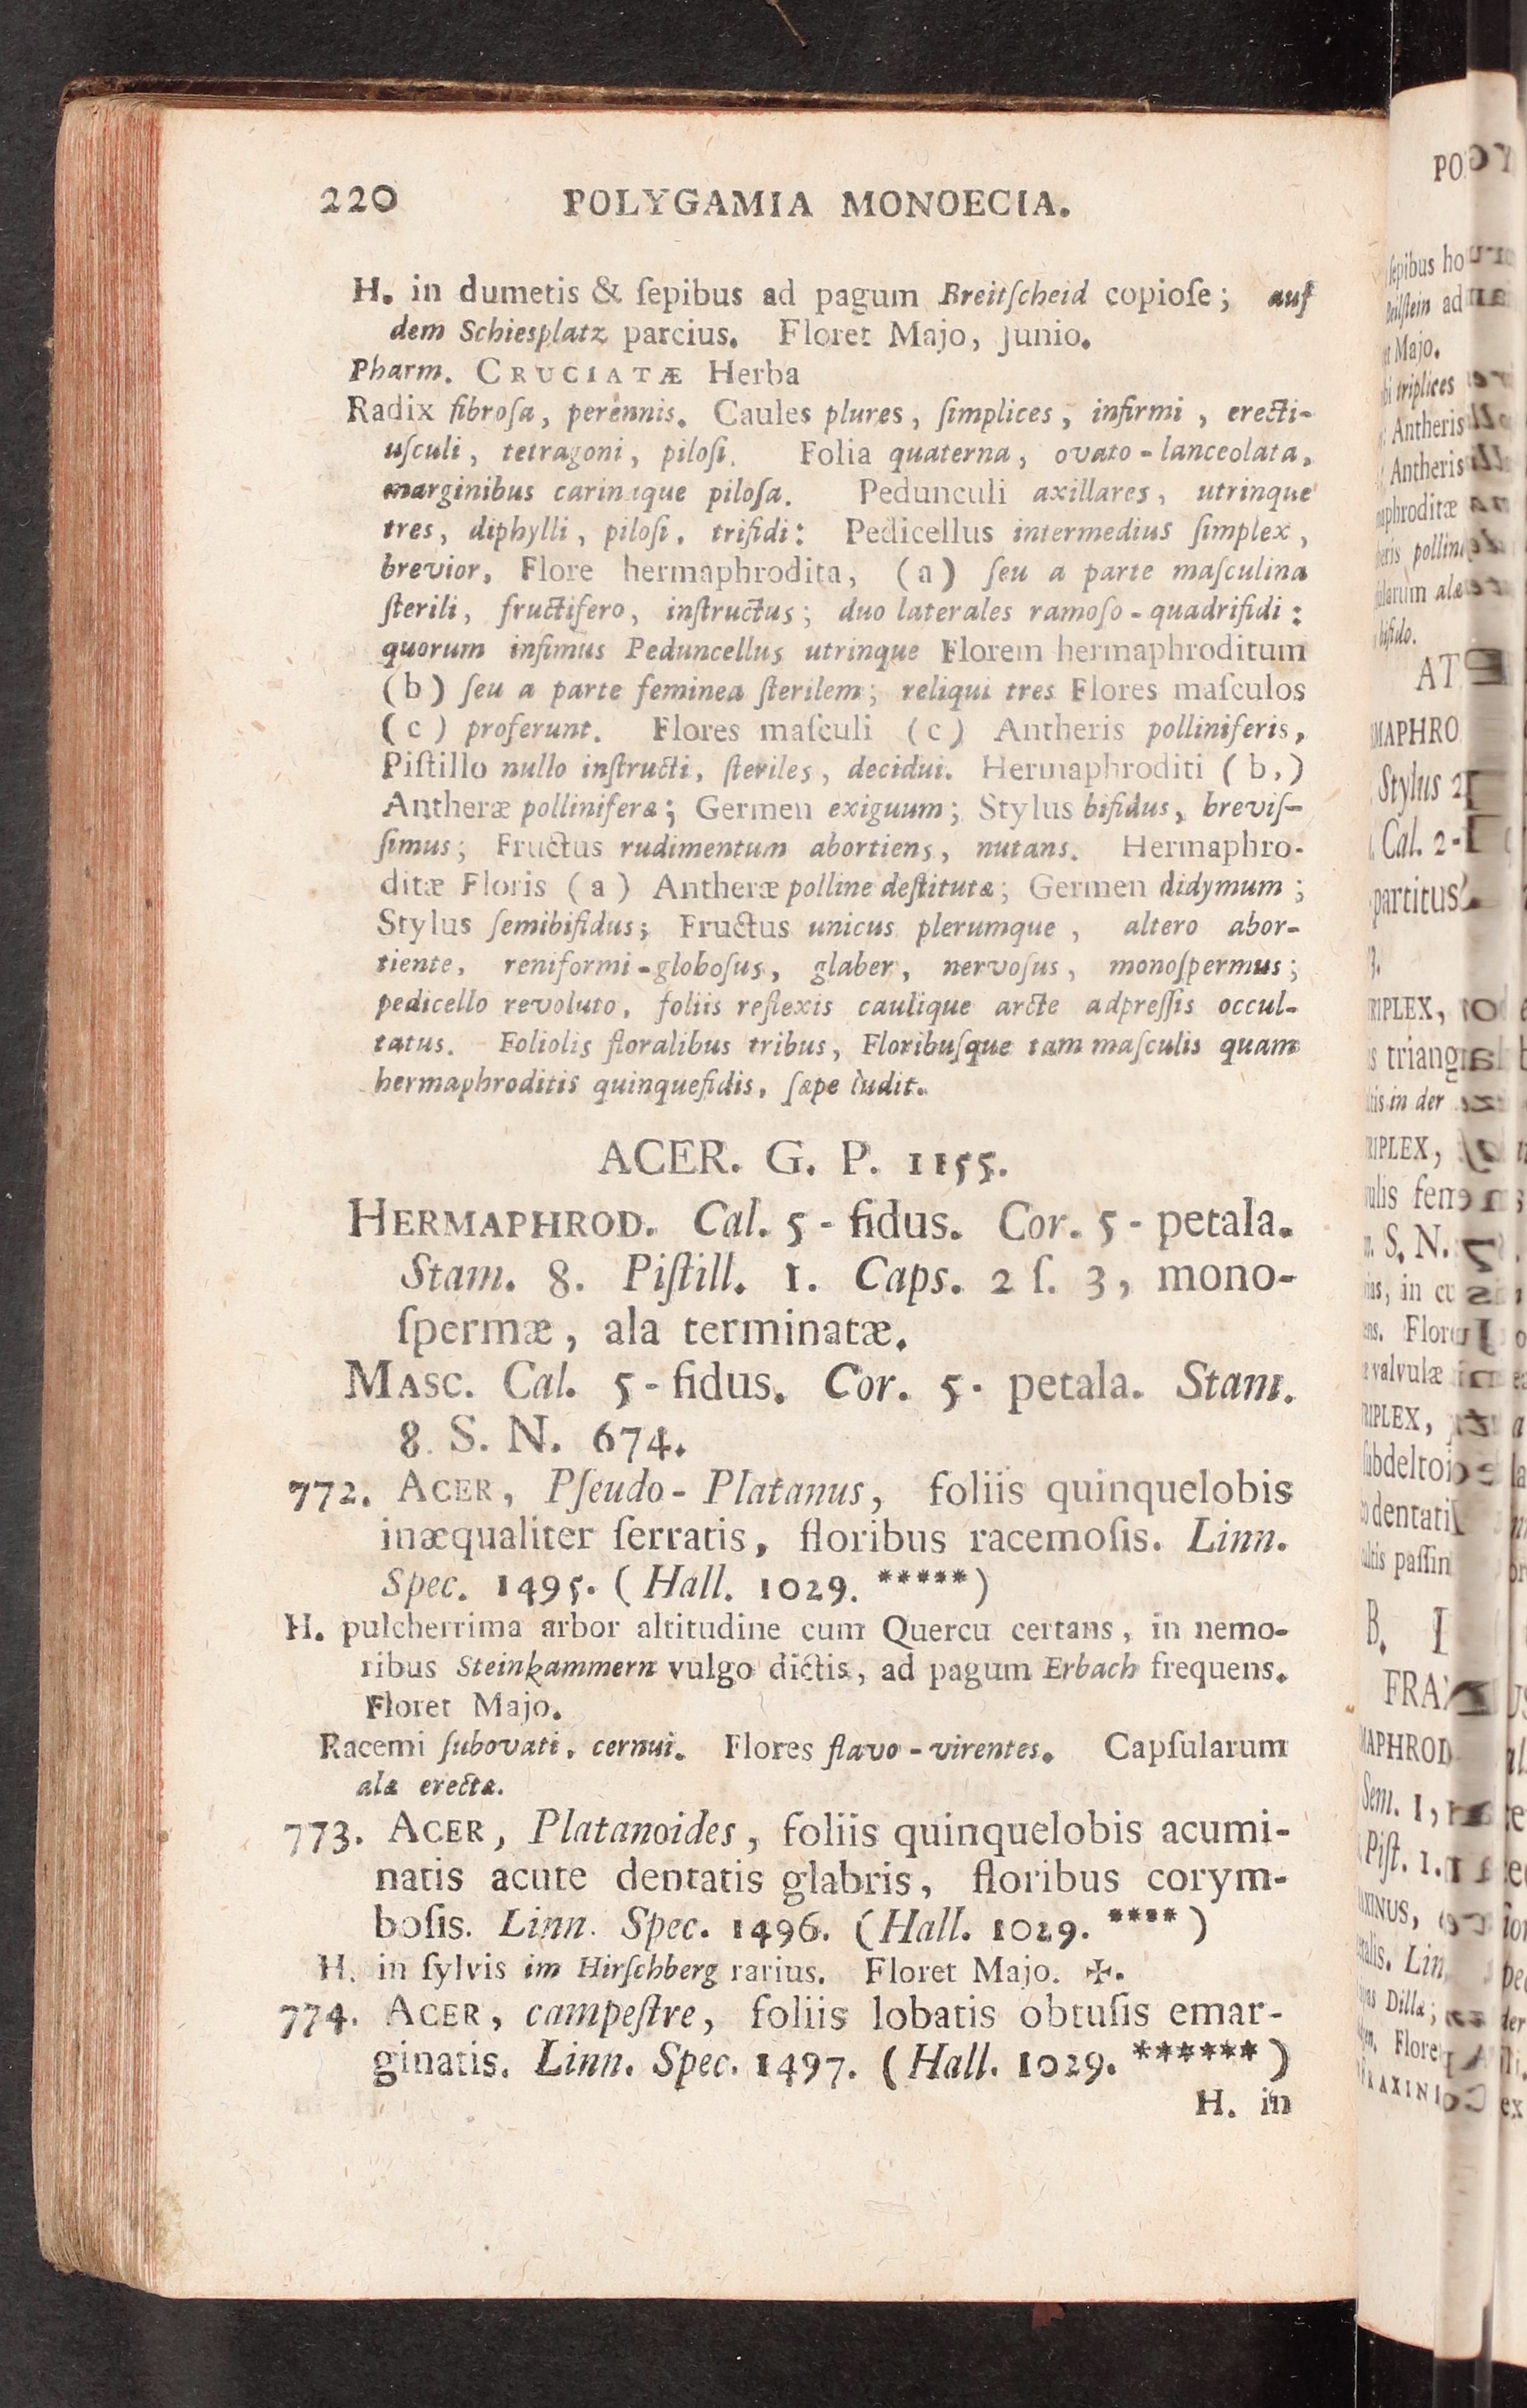 220 POLYGAMIA MONOECIA.
H. in dumetis & ſepibus ad pagum Breitſcheid copioſe; auf
dem Schiesplatz parcius. Floret Majo, Junio.
Pharm. CRUCIATÆ Herba
Radix fibroſa, perennis. Caules plures, ſimplices, infirmi, erecti-
uſculi, tetragoni, piloſi. Folia quaterna, ovato-lanceolata,
marginibus carinaque piloſa. Pedunculi axillares, utrinque
tres, diphylli, piloſi, trifidi: Pedicellus intermedius ſimplex,
brevior, Flore hermaphrodita, (a) ſeu a parte maſculina
ſterili, fructifero, inſtructus; duo laterales ramoſo-quadrifidi:
quorum infimus Peduncellus utrinque Florem hermaphroditum
(b) ſeu a parte feminea ſterilem; reliqui tres Flores maſculos
(c) proferunt. Flores maſculi (c) Antheris polliniferis,
Piſtillo nullo inſtructi, ſteriles, decidui. Hermaphroditi (b,)
Antheræ polliniferæ; Germen exiguum; Stylus bifidus, breviſ-
ſimus; Fructus rudimentum abortiens, nutans. Hermaphro-
ditæ Floris (a) Antheræ polline deſtitutæ; Germen didymum;
Stylus ſemibifidus; Fructus unicus plerumque, altero abor-
tiente, reniformi-globoſus, glaber, nervoſus, monoſpermus;
pedicello revoluto, foliis reflexis caulique arcte adpreſſis occul-
tatus. Foliolis floralibus tribus, Floribuſque tam maſculis quam
hermaphroditis quinquefidis, ſæpe ludit.
ACER. G. P. 1155.
HERMAPHROD. Cal. 5-fidus. Cor. 5-petala.
Stam. 8. Piſtill. 1. Caps. 2 ſ. 3, mono-
ſpermæ, ala terminatæ.
MASC. Cal. 5-fidus. Cor. 5-petala. Stam.
8. S. N. 674.
772. ACER, Pſeudo-Platanus, foliis quinquelobis
inæqualiter ſerratis, floribus racemoſis. Linn.
Spec. 1495. (Hall. 1029. *****)
H. pulcherrima arbor altitudine cum Quercu certans, in nemo-
ribus Steinkammern vulgo dictis, ad pagum Erbach frequens.
Floret Majo.
Racemi ſubovati, cernui. Flores flavo-virentes. Capſularum
alæ erectæ.
773. ACER, Platanoides, foliis quinquelobis acumi-
natis acute dentatis glabris, floribus corym-
boſis. Linn. Spec. 1496. (Hall. 1029. ****)
H. in ſylvis im Hirſchberg rarius. Floret Majo. ✠.
774. ACER, campeſtre, foliis lobatis obtuſis emar-
ginatis. Linn. Spec. 1497. (Hall. 1029. ******)
H. in